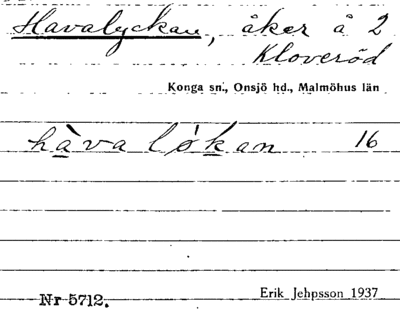 Havalyckan, åker å 2
Kloveröd
Konga sn., Onsjö hd., Malmöhus län
hàva lókan 16
Nr 5712.
Erik Jehpsson 1937